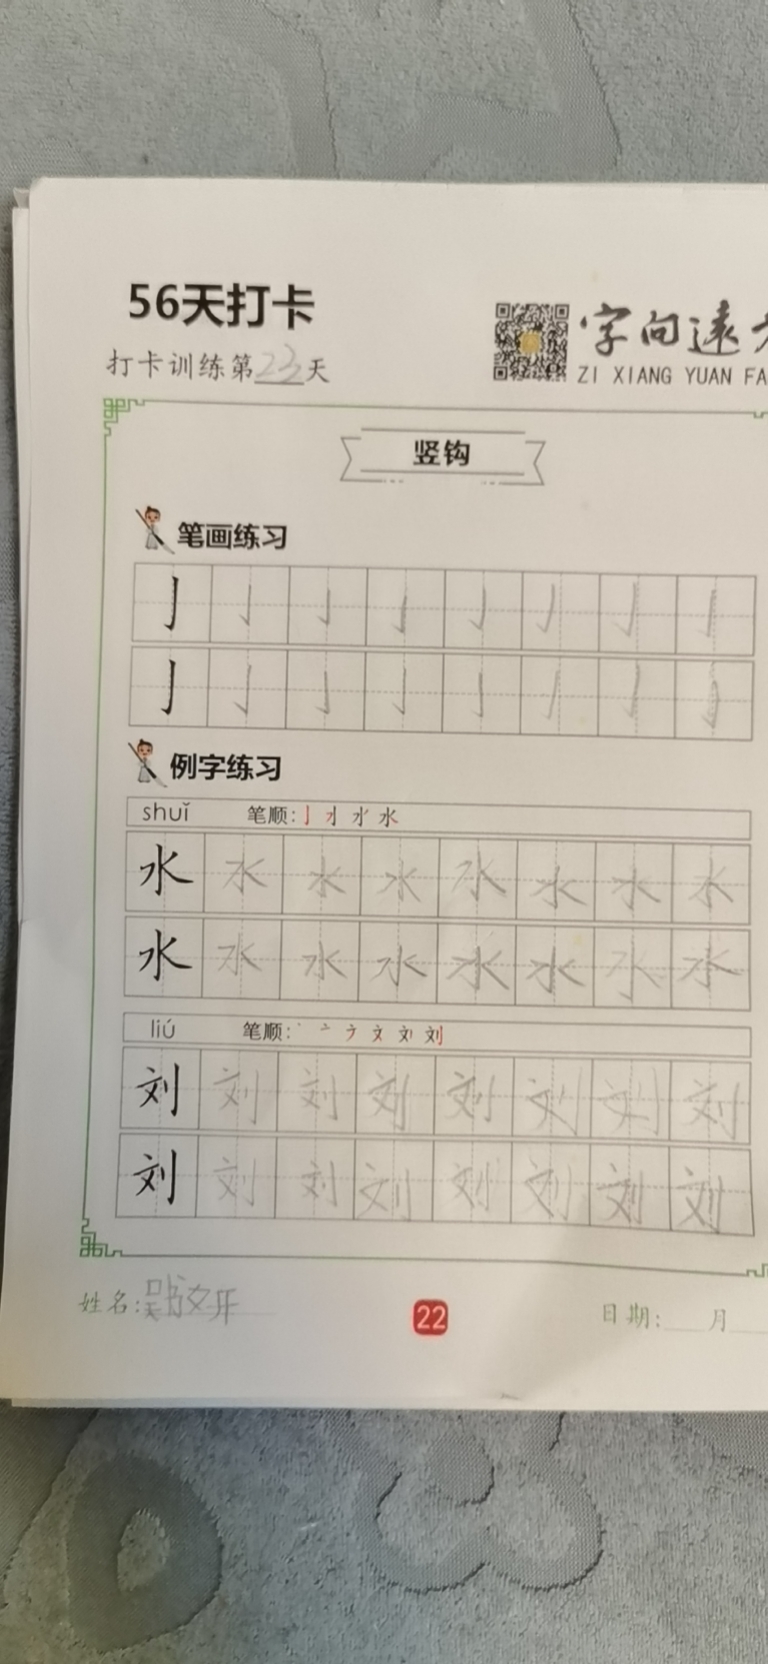 56天打卡
字向遠
打卡训练第23天
ZI XIANG YUAN FA
竖钩
笔画练习
亅亅亅亅亅亅亅亅
亅亅亅亅亅亅亅亅
例字练习
shuǐ 笔顺:
水水水水水水水水
水水水水水水水水
liú 笔顺:
刘刘刘刘刘刘刘刘
刘刘刘刘刘刘刘刘
姓名:
22
日期: 月